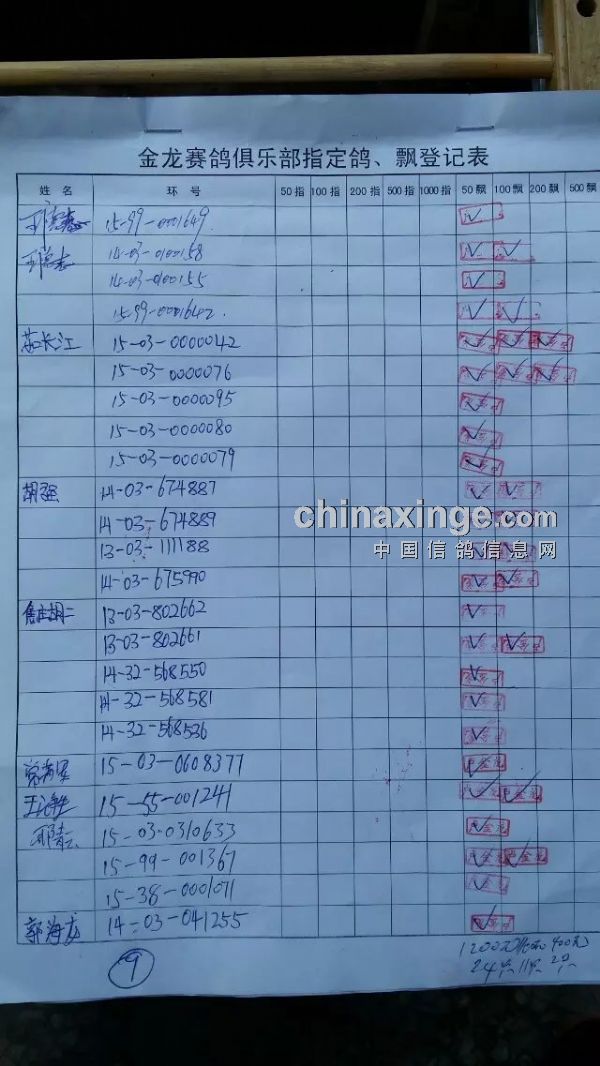 金龙赛鸽俱乐部指定鸽、飘登记表
姓名 环号 50指 100指 200指 500指 1000指 50飘 100飘 200飘 500飘
15-99-0001649
14-03-0100158
14-03-0100155
15-99-0001642
茹长江 15-03-0000042
15-03-0000076
15-03-0000095
15-03-0000080
15-03-0000079
胡强 14-03-674887
14-03-674889
13-03-111188
14-03-675990
胡二 13-03-802662
13-03-802661
14-32-568550
14-32-568581
14-32-568536
15-03-0608377
15-55-001241
15-03-0310633
15-99-001367
15-38-0001071
郭海龙 14-03-041255
9
1200元 400元
24 11 2
chinaxinge.com
中国信鸽信息网